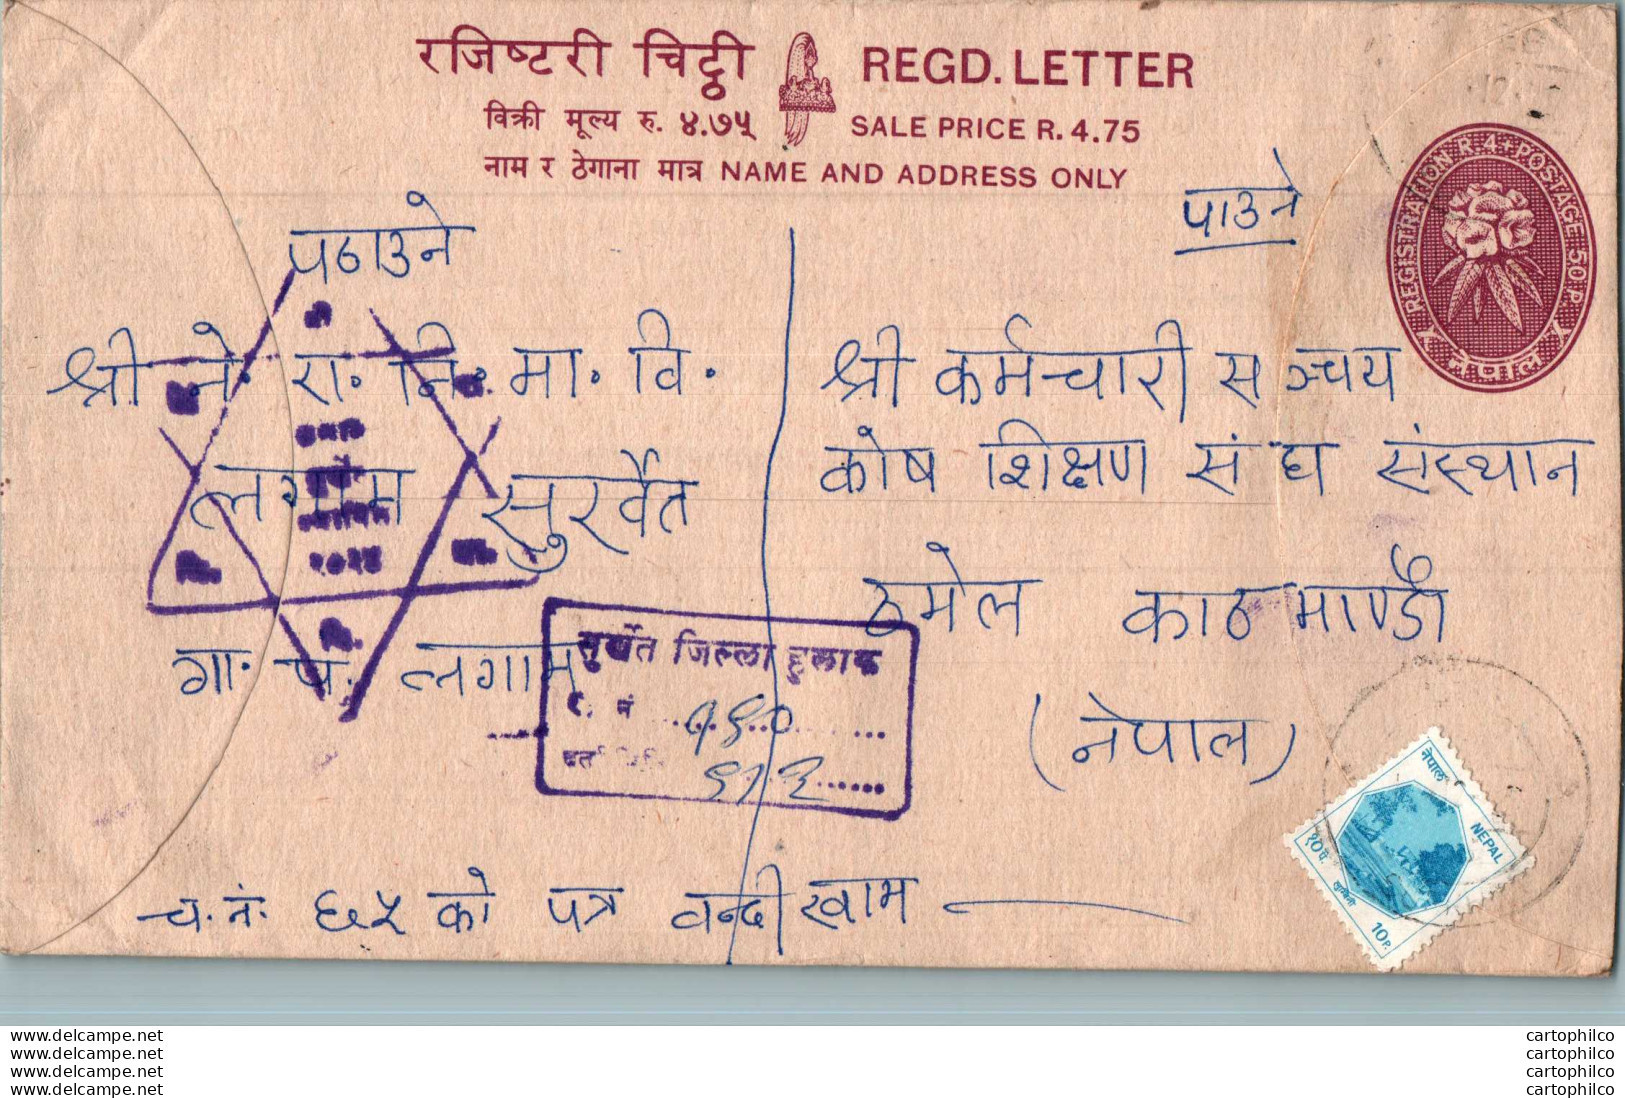 रजिष्टरी चिट्ठी REGD. LETTER
विक्री मूल्य रु. ४.७५ SALE PRICE R. 4.75
नाम र ठेगाना मात्र NAME AND ADDRESS ONLY
REGISTRATION R 4+POSTAGE 50 P.
नेपाल
पठाउने
श्री ने. रा. नि. मा. वि.
लगाम सुर्खेत
गा. प. लगाम
२०३४
पाउने
श्री कर्मचारी सञ्चय
कोष शिक्षण संघ संस्थान
ठमेल काठमाण्डौ
(नेपाल)
सुर्खेत जिल्ला हुलाक
र. नं
दर्ता
च. नं. ६५ को पत्र वन्दी खाम
नेपाल
NEPAL
१० पै.
लुम्बिनी
10 P.
delcampe.net
delcampe.net
delcampe.net
delcampe.net
cartophilco
cartophilco
cartophilco
cartophilco